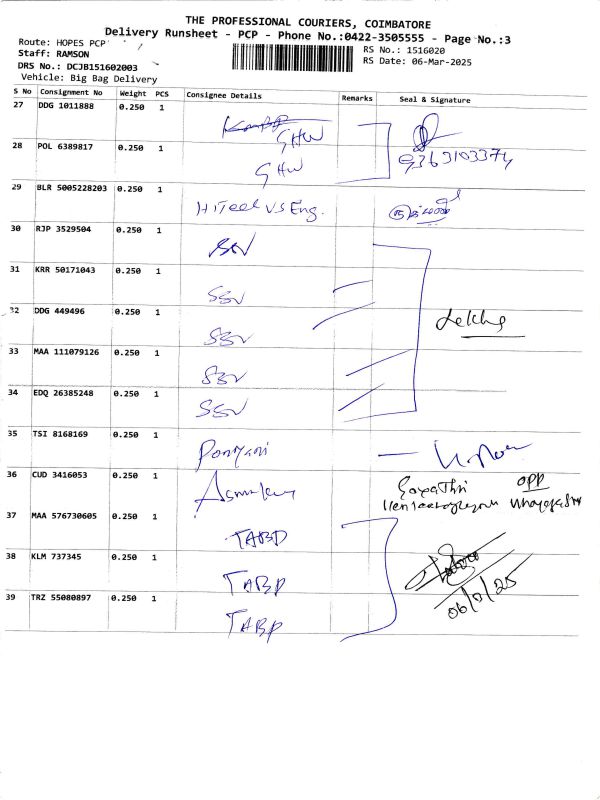 THE PROFESSIONAL COURIERS, COIMBATORE
Delivery Runsheet - PCP - Phone No.:0422-3505555 - Page No.:3
Route: HOPES PCP
RS No.: 1516020
Staff: RAMSON
RS Date: 06-Mar-2025
DRS No.: DCJB151602003
Vehicle: Big Bag Delivery
S No Consignment No Weight PCS Consignee Details Remarks Seal & Signature
27 DDG 1011888 0.250 1 GHW
28 POL 6389817 0.250 1 GHW 9363103374
29 BLR 5005228203 0.250 1 HiTech VS Eng.
30 RJP 3529504 0.250 1 SSV
31 KRR 50171043 0.250 1 SSV
32 DDG 449496 0.250 1 SSV
33 MAA 111079126 0.250 1 SSV
34 EDQ 26385248 0.250 1 SSV
35 TSI 8168169 0.250 1 Ponmani
36 CUD 3416053 0.250 1 Gayathri OPP
37 MAA 576730605 0.250 1 TABP
38 KLM 737345 0.250 1 TABP
39 TRZ 55080897 0.250 1 TABP